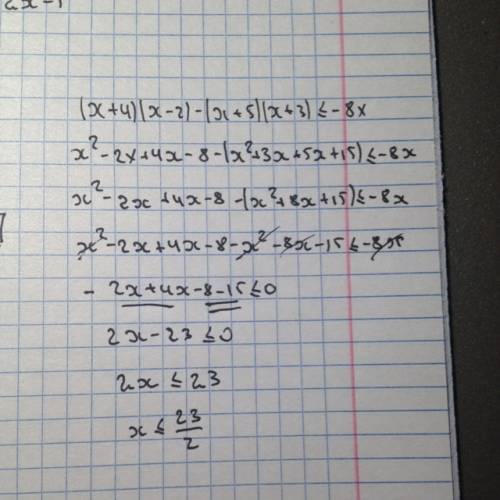 2x-1
(x+4)(x-2)-(x+5)(x+3)≤-8x
x²-2x+4x-8-(x²+3x+5x+15)≤-8x
x²-2x+4x-8-(x²+8x+15)≤-8x
x²-2x+4x-8-x²-8x-15≤-8x
-2x+4x-8-15≤0
2x-23≤0
2x≤23
x≤23/2